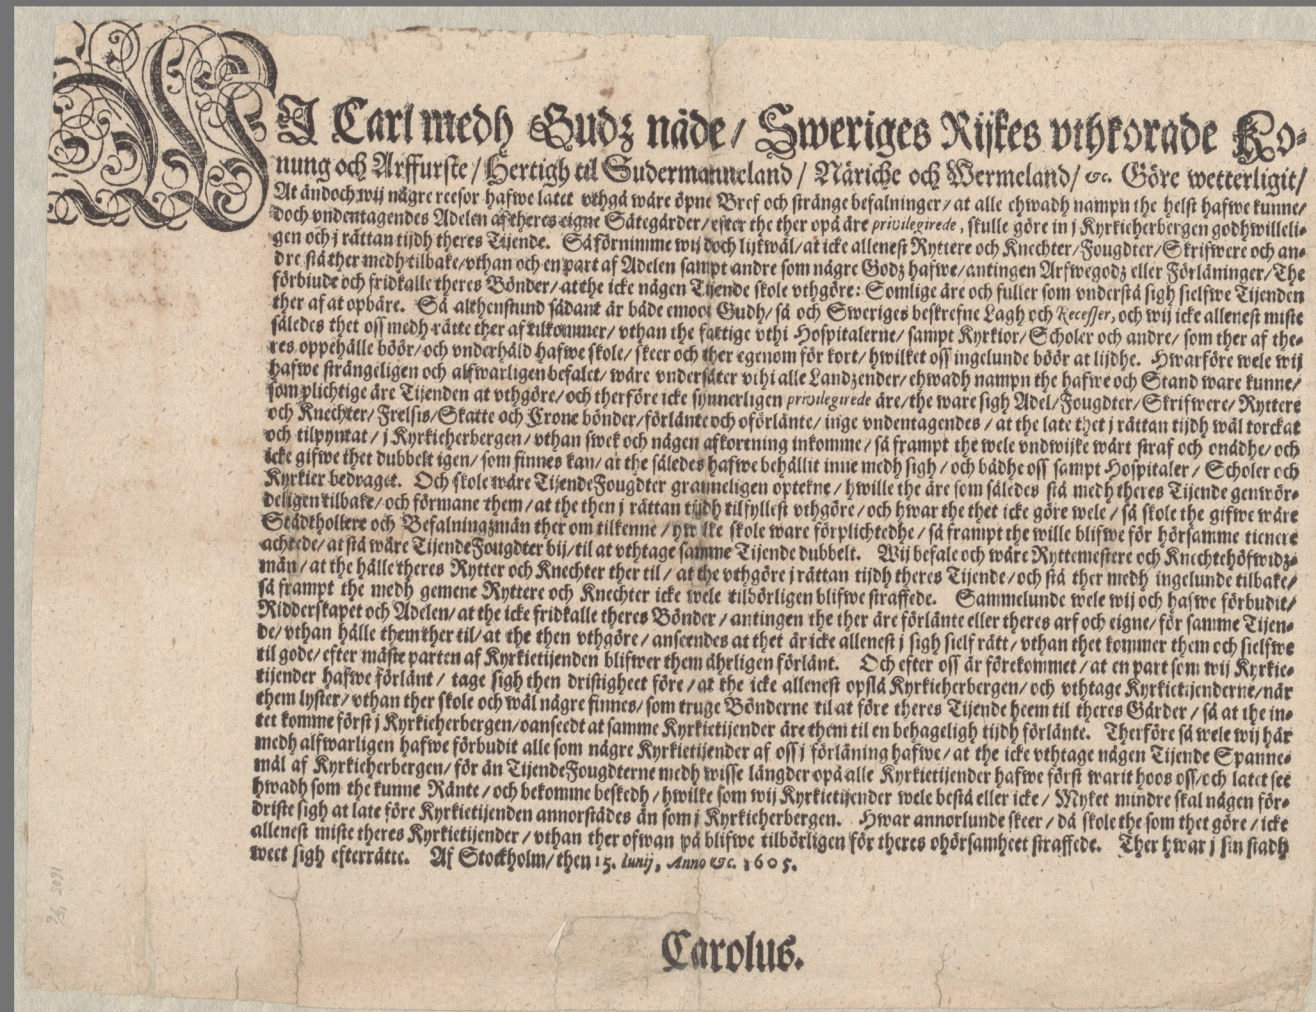 WJ Carl medh Gudz nåde/ Sweriges Rijkes vthkorade Ko-
nung och Arffurste/ Hertigh til Sudermanneland/ Näriche och Wermeland/ &c. Göre wetterligit/
At ändoch wij någre reesor hafwe latet vthgå wåre öpne Bref och stränge befalninger/ at alle ehwadh nampn the helst hafwe kunne/
doch vndentagendes Adelen af theres eigne Sätegårder/ efter the ther opå äre privilegirede, skulle göre in j Kyrkieherbergen godhwilleli-
gen och j rättan tijdh theres Tijende. Så förnimme wij doch lijkwäl/ at icke allenest Ryttere och Knechter/ Fougdter/ Skrifwere och an-
dre stå ther medh tilbake/ vthan och en part af Adelen sampt andre som någre Godz hafwe/ antingen Arfwegodz eller Förläninger/ The
förbiude och fridkalle theres Bönder/ at the icke någen Tijende skole vthgöre: Somlige äre och fuller som vnderstå sigh sielfwe Tijenden
ther af at opbäre. Så althenstund sådant är både emoot Gudh/ så och Sweriges beskrefne Lagh och Recesser, och wij icke allenest miste
således thet oss medh rätte ther af tilkommer/ vthan the fattige vthi Hospitalerne/ sampt Kyrkior/ Scholer och andre/ som ther af the-
res oppehälle böör/ och vnderhåld hafwe skole/ skeer och ther egenom för kort/ hwilket oss ingelunde böör at lijdhe. Hwarföre wele wij
hafwe strängeligen och alfwarligen befalet/ wåre vndersåter vthi alle Landzender/ ehwadh nampn the hafwe och Stand ware kunne/
som plichtige äre Tijenden at vthgöre/ och therföre icke synnerligen privilegirede äre/ the ware sigh Adel/ Fougdter/ Skrifwere/ Ryttere
och Knechter/ Frelsis/ Skatte och Crone bönder/ förlänte och oförlänte/ inge vndentagendes/ at the late thet j rättan tijdh wäl torckat
och tilpyntat/ j Kyrkieherbergen/ vthan swek och någen afkortning inkomme/ så frampt the wele vndwijke wårt straf och onådhe/ och
icke gifwe thet dubbelt igen/ som finnes kan/ at the således hafwe behållit inne medh sigh/ och bådhe oss sampt Hospitaler/ Scholer och
Kyrkier bedraget. Och skole wåre TijendeFougdter granneligen optekne/ hwilke the äre som således stå medh theres Tijende genwör-
deligen tilbake/ och förmane them/ at the then j rättan tijdh tilfyllest vthgöre/ och hwar the thet icke göre wele/ så skole the gifwe wåre
Städtholtere och Befalningzmän ther om tilkenne/ hwilke skole ware förplichtedhe/ så frampt the wille blifwe för hörsamme tienere
achtede/ at stå wåre TijendeFougdter bij/ til at vthtage samme Tijende dubbelt. Wij befale och wåre Ryttemestere och Knechtehöfwidz-
män/ at the hålle theres Rytter och Knechter ther til/ at the vthgöre j rättan tijdh theres Tijende/ och stå ther medh ingelunde tilbake/
så frampt the medh gemene Ryttere och Knechter icke wele tilbörligen blifwe straffede. Sammelunde wele wij och hafwe förbudit/
Ridderskapet och Adelen/ at the icke fridkalle theres Bönder/ antingen the ther äre förlänte eller theres arf och eigne/ för samme Tijen-
de/ vthan hålle them ther til/ at the then vthgöre/ anseendes at thet är icke allenest j sigh sielf rätt/ vthan thet kommer them och sielfwe
til gode/ efter mäste parten af Kyrkietijenden blifwer them åhrligen förlänt. Och efter oss är förekommet/ at en part som wij Kyrkie-
tijender hafwe förlänt/ tage sigh then dristigheet före/ at the icke allenest opslå Kyrkieherbergen/ och vthtage Kyrkietijenderne/ när
them lyster/ vthan ther skole och wäl någre finnes/ som truge Bönderne til at före theres Tijende heem til theres Gårder/ så at the in-
tet komme först j Kyrkieherbergen/ oanseedt at samme Kyrkietijender äre them til en behageligh tijdh förlänte. Therföre så wele wij här
medh alfwarligen hafwe förbudit alle som någre Kyrkietijender af oss j förläning hafwe/ at the icke vthtage någen Tijende Spanne-
mål af Kyrkieherbergen/ för än TijendeFougdterne medh wisse längder opå alle Kyrkietijender hafwe först warit hoos oss/ och latet see
hwadh som the kunne Ränte/ och bekomme beskedh/ hwilke som wij Kyrkietijender wele bestå eller icke/ Myket mindre skal någen för-
driste sigh at late före Kyrkietijenden annorstädes än som j Kyrkieherbergen. Hwar annorlunde skeer/ då skole the som thet göre/ icke
allenest miste theres Kyrkietijender/ vthan ther ofwan på blifwe tilbörligen för theres ohörsamheet straffede. Ther hwar j sin stadh
weet sigh efterrätte. Af Stockholm/ then 15. Iunij, Anno &c. 1605.
Carolus.